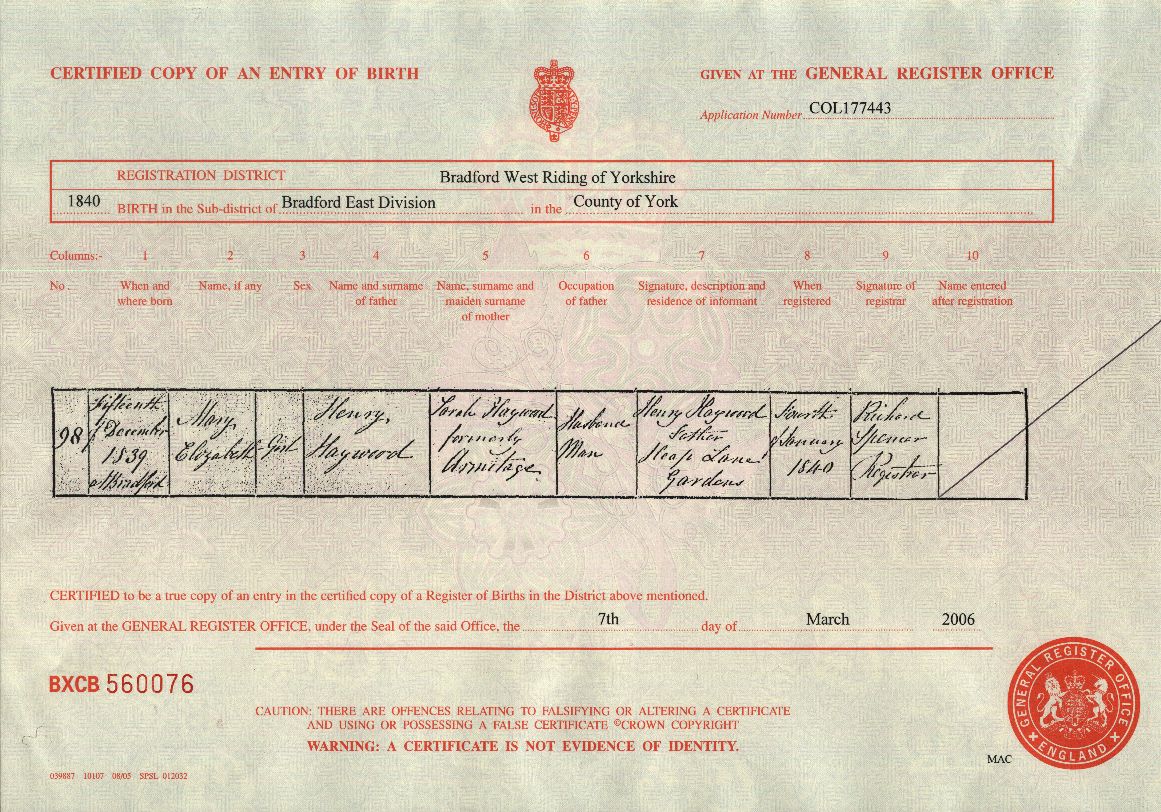 CERTIFIED COPY OF AN ENTRY OF BIRTH
GIVEN AT THE GENERAL REGISTER OFFICE
Application Number COL177443
REGISTRATION DISTRICT Bradford West Riding of Yorkshire
1840 BIRTH in the Sub-district of Bradford East Division in the County of York
Columns:- 1 2 3 4 5 6 7 8 9 10
No. When and where born Name, if any Sex Name and surname of father Name, surname and maiden surname of mother Occupation of father Signature, description and residence of informant When registered Signature of registrar Name entered after registration
98 Fifteenth of December 1839 at Bradford
Mary Elizabeth
Girl
Henry Haywood
Sarah Haywood formerly Armitage
Husband Man
Henry Haywood Father Heap Lane Gardens
Fourth January 1840
Richard Spencer Registrar
CERTIFIED to be a true copy of an entry in the certified copy of a Register of Births in the District above mentioned.
Given at the GENERAL REGISTER OFFICE, under the Seal of the said Office, the 7th day of March 2006
BXCB 560076
CAUTION: THERE ARE OFFENCES RELATING TO FALSIFYING OR ALTERING A CERTIFICATE
AND USING OR POSSESSING A FALSE CERTIFICATE ©CROWN COPYRIGHT
WARNING: A CERTIFICATE IS NOT EVIDENCE OF IDENTITY.
GENERAL REGISTER OFFICE
ENGLAND
MAC
039887 10107 08/05 SPSL 012032